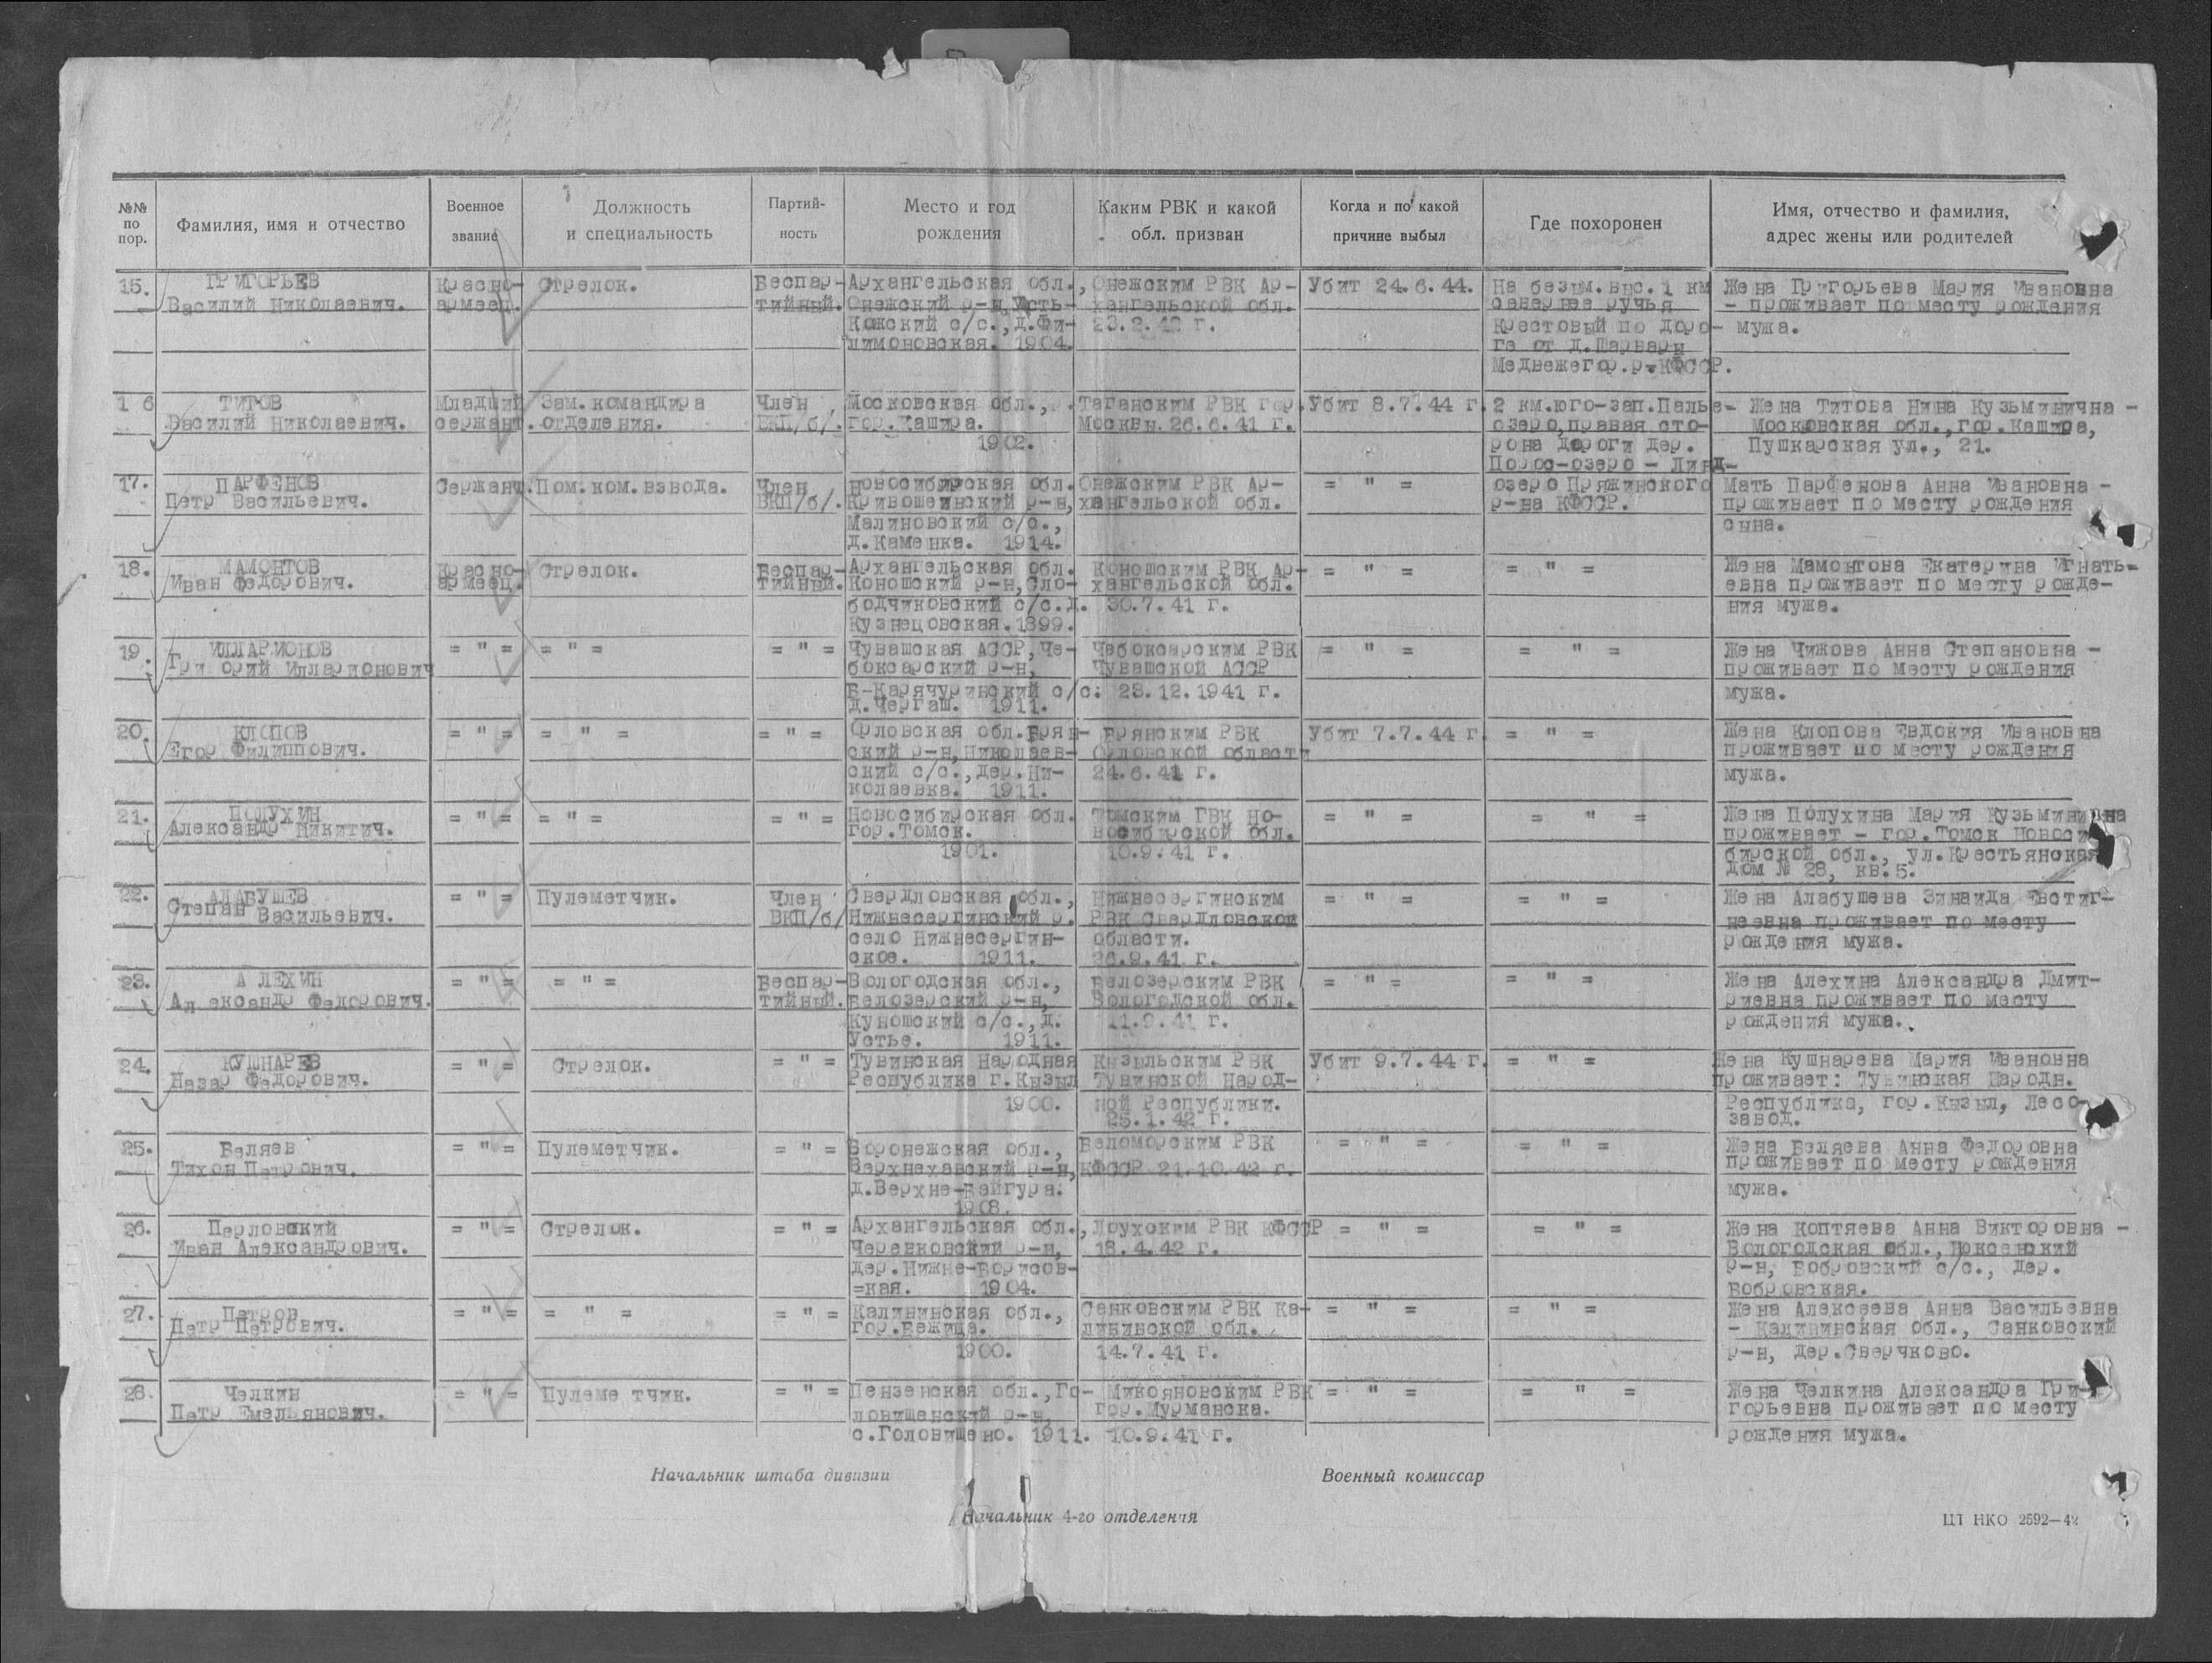 №№ по пор.
Фамилия, имя и отчество
Военное звание
Должность и специальность
Партий-ность
Место и год рождения
Каким РВК и какой обл. призван
Когда и по какой причине выбыл
Где похоронен
Имя, отчество и фамилия, адрес жены или родителей
15. ГРИГОРЬЕВ Красно- Стрелок. Беспар- Архангельская обл., Онежским РВК Ар- Убит 24.6.44. На безым.выс. 1 км Жена Григорьева Мария Ивановна
Василий Николаевич. армеец. тийный. Онежский р-н, Усть- хангельской обл. севернее ручья - проживает по месту рождения
Кожский с/с., д.Фи- 23.2.42 г. Крестовый по доро- мужа.
лимоновская. 1904. ге от д.Шарвары
Медвежегор.р-КФССР.
16 ТИТОВ Младший Зам.командира Член Московская обл., Таганским РВК гор. Убит 8.7.44 г. 2 км.юго-зап.Палье- Жена Титова Нина Кузьминична -
Василий Николаевич. сержант. отделения. ВКП/б/. гор.Кашира. Москвы. 26.6.41 г. озеро, правая сто- Московская обл., гор.Кашира,
1902. рона дороги дер. Пушкарская ул., 21.
Порос-озеро - Линд-
17. ПАРФЕНОВ Сержант. Пом.ком.взвода. Член Новосибирская обл. Онежским РВК Ар- = " = озеро Пряжинского Мать Парфенова Анна Ивановна -
Петр Васильевич. ВКП/б/. Кривошеинский р-н, хангельской обл. р-на КФССР. проживает по месту рождения
Малиновский с/с., сына.
д.Каменка. 1914.
18. МАМОНТОВ Красно- Стрелок. Беспар- Архангельская обл. Коношским РВК Ар- = " = = " = Жена Мамонтова Екатерина Игнать-
Иван Федорович. армеец. тийный. Коношский р-н, Сло- хангельской обл. евна проживает по месту рожде-
бодчиковский с/с.д. 30.7.41 г. ния мужа.
Кузнецовская. 1899.
19. ИЛЛАРИОНОВ = " = = " = = " = Чувашская АССР, Че- Чебоксарским РВК = " = = " = Жена Чижова Анна Степановна -
Григорий Илларионович боксарский р-н, Чувашской АССР проживает по месту рождения
Б-Карачуринский с/с. 23.12.1941 г. мужа.
д.Чергаш. 1911.
20. КЛОПОВ = " = = " = = " = Орловская обл.Брян- Брянским РВК Убит 7.7.44 г. = " = Жена Клопова Евдокия Ивановна
Егор Филиппович. ский р-н, Николаев- Орловской области проживает по месту рождения
ский с/с., дер.Ни- 24.6.41 г. мужа.
колаевка. 1911.
21. ПОЛУХИН = " = = " = = " = Новосибирская обл. Томским ГВК Но- = " = = " = Жена Полухина Мария Кузьминична
Александр Никитич. гор.Томск. восибирской обл. проживает - гор.Томск Новоси
1901. 10.9.41 г. бирской обл., ул.Крестьянская
дом № 28, кв.5.
22. АЛАБУШЕВ = " = Пулеметчик. Член Свердловская обл., Нижнесергинским = " = = " = Жена Алабушева Зинаида Евстиг-
Степан Васильевич. ВКП/б/ Нижнесергинский р. РВК Свердловской неевна проживает по месту
село Нижнесергин- области. рождения мужа.
ское. 1911. 26.9.41 г.
23. АЛЕХИН = " = = " = Беспар- Вологодская обл., Белозерским РВК = " = = " = Жена Алехина Александра Дмит-
Александр Федорович. тийный. Белозерский р-н, Вологодской обл. риевна проживает по месту
Куношский с/с., д. 11.9.41 г. рождения мужа.
Устье. 1911.
24. КУШНАРЕВ = " = Стрелок. = " = Тувинская Народная Кызыльским РВК Убит 9.7.44 г. = " = Жена Кушнарева Мария Ивановна
Назар Федорович. Республика г.Кызыл Тувинской Народ- проживает: Тувинская Народн.
1900. ной Республики. Республика, гор.Кызыл, Лесо-
25.1.42 г. завод.
25. Беляев = " = Пулеметчик. = " = Воронежская обл., Беломорским РВК = " = = " = Жена Беляева Анна Федоровна
Тихон Петрович. Верхнехавский р-н, КФССР 21.10.42 г. проживает по месту рождения
д.Верхне-Байгура. мужа.
1908.
26. Перловский = " = Стрелок. = " = Архангельская обл., Лоухским РВК КФССР = " = = " = Жена Коптяева Анна Викторовна -
Иван Александрович. Черевковский р-н, 18.4.42 г. Вологодская обл., Нюксенский
дер.Нижне-Борисов- р-н, Бобровский с/с., дер.
=кая. 1904. Бобровская.
27. Петров = " = = " = = " = Калининская обл., Санковским РВК Ка- = " = = " = Жена Алексеева Анна Васильевна
Петр Петрович. гор.Бежица. лининской обл. - Калининская обл., Санковский
1900. 14.7.41 г. р-н, дер.Сверчково.
28. Челкин = " = Пулеметчик. = " = Пензенская обл., Го- Микояновским РВК = " = = " = Жена Челкина Александра Гри-
Петр Емельянович. ловищенский р-н, гор.Мурманска. горьевна проживает по месту
с.Головищено. 1911. 10.9.41 г. рождения мужа.
Начальник штаба дивизии Военный комиссар
Начальник 4-го отделения
ЦТ НКО 2592—42